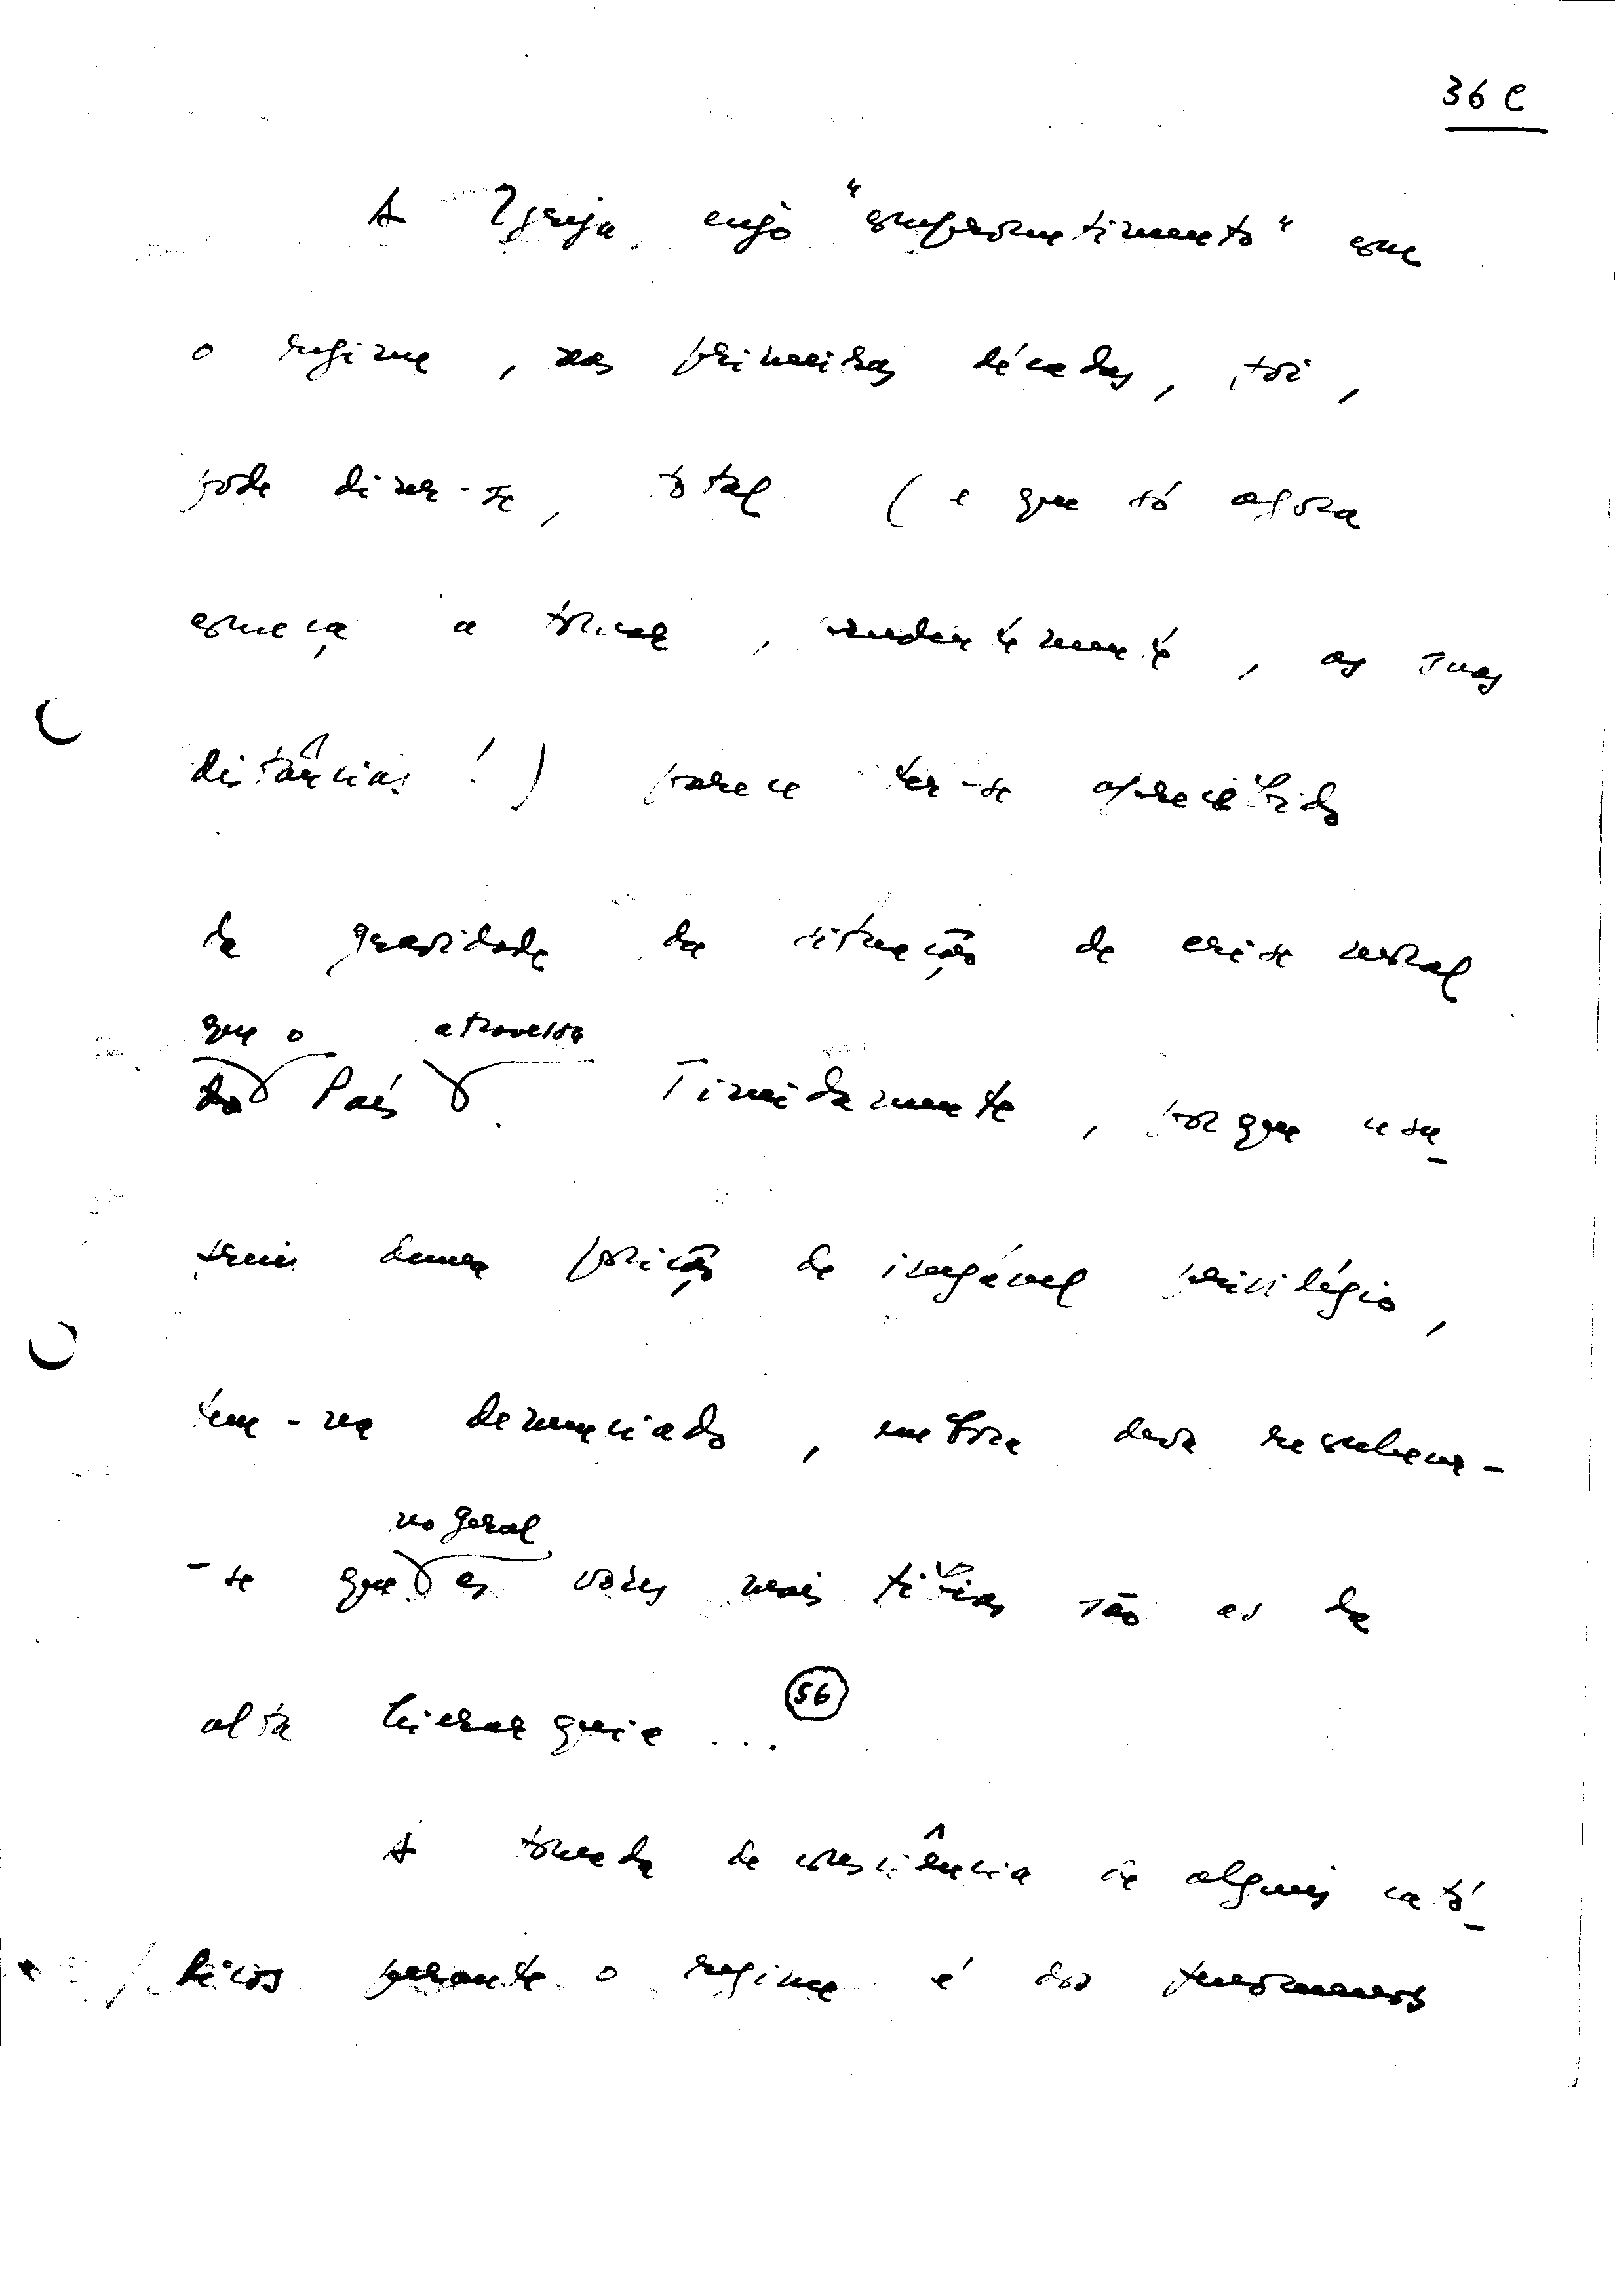 36 C
A Igreja cujo "comprometimento" com
o regime, nas primeiras décadas, foi,
pode dizer-se, total (e que só agora
começa a tomar, prudentemente, as suas
distâncias!) parece ter-se apercebido
da gravidade da situação de crise moral
que o atravessa
do País. Timidamente, porque usu-
frui duma posição de inegável privilégio,
tem-na denunciado, embora deva reconhecer-
no geral
-se que as vozes mais tíbias são as da
alta hierarquia... 56
A tomada de consciência de alguns cató-
licos perante o regime é dos fenómenos